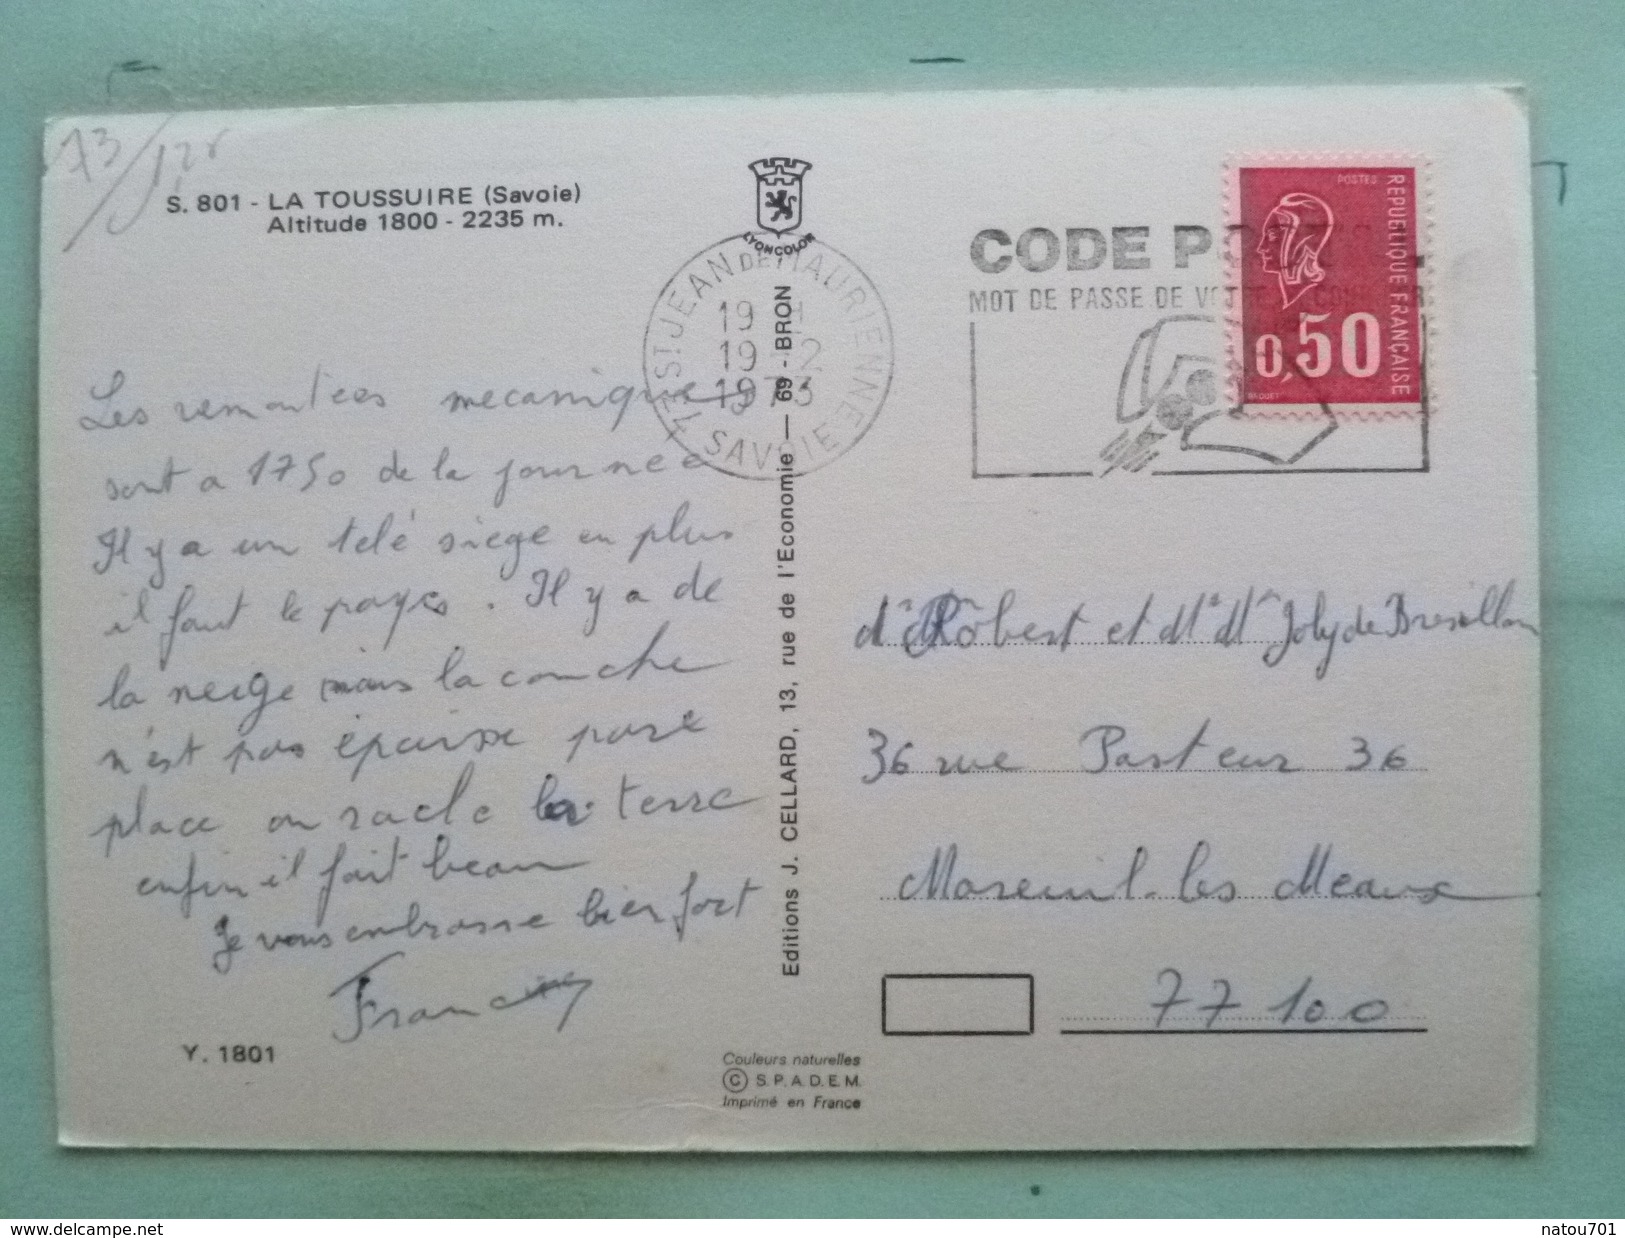 73/1,28
S. 801 - LA TOUSSUIRE (Savoie)
Altitude 1800 - 2235 m.
LYONCOLOR
73 ST JEAN DE MAURIENNE
SAVOIE
19 H
19 - 12
1973
CODE POSTAL
MOT DE PASSE DE VOTRE
POSTES
REPUBLIQUE FRANÇAISE
0,50
Les remontées mecanique
sont a 1750 de la journeé
Il y a un télé siege en plus
il faut le payé. Il y a de
la neige mais la couche
n'est pas épaisse pare
place on racle la terre
enfin il fait beau
Je vous embrasse bien fort
Y. 1801
Editions J. CELLARD, 13, rue de l'Economie — 69 - BRON
Couleurs naturelles
© S.P.A.D.E.M.
Imprimé en France
Robert et Joly de Bresillon
36 rue Pasteur 36
Mareuil-les Meaux
77100
www.delcampe.net
natou701